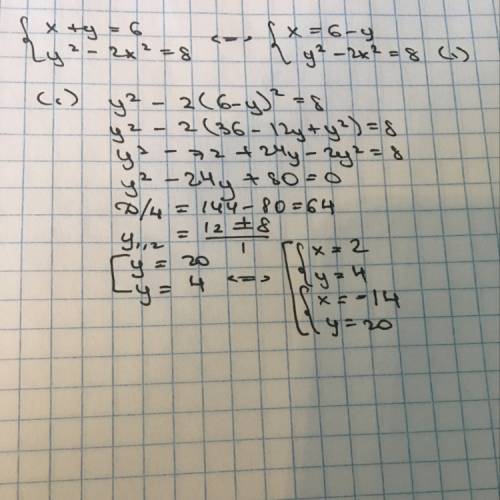 {x + y = 6 <=> {x = 6 - y
{y² - 2x² = 8 {y² - 2x² = 8 (1)
(1) y² - 2(6-y)² = 8
y² - 2(36 - 12y + y²) = 8
y² - 72 + 24y - 2y² = 8
y² - 24y + 80 = 0
D/4 = 144 - 80 = 64
y₁,₂ = (12 ± 8)/1
[y = 20 <=> [{x = 2
[y = 4 [{y = 4
[{x = -14
[{y = 20